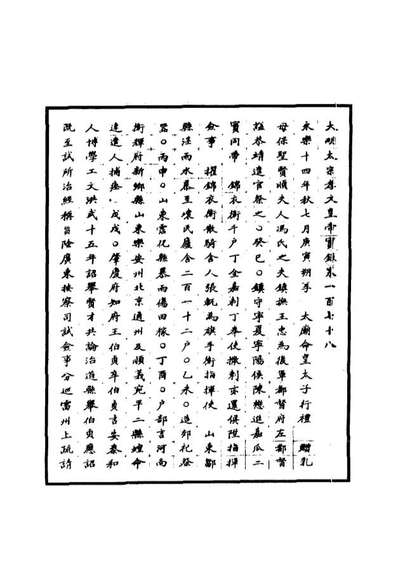 大明太宗孝文皇帝實錄卷一百七十八
永樂十四年秋七月庚寅朔享　太廟命皇太子行禮　贈乳
母保聖賢順夫人馮氏之夫鎮撫王忠為後軍都督府左都督
諡恭靖遣官祭之○癸巳○鎮守寧夏寧陽侯陳懋進嘉瓜二
實同帶　錦衣衛千戶丁全嘉剌丁奉使撒剌亦還俱陞指揮
僉事　擢錦衣衛散騎舍人張軏為旗手衛指揮使　山東鄒
縣淫雨水暴至壞民廬舍二百一十二戶○乙未○造郊祀祭
器○丙申○山東霑化縣暴雨傷田稼○丁酉○戶部言河南
衛輝府新鄉縣山東樂安州北京通州及順義宛平二縣蝗命
遣人捕瘞　戊戌○肇慶府知府王伯貞卒伯貞吉安泰和
人博學工文洪武十五年詔舉賢才共論治道縣舉伯貞應詔
既至試所治經稱旨除廣東按察司試僉事分巡雷州上疏請